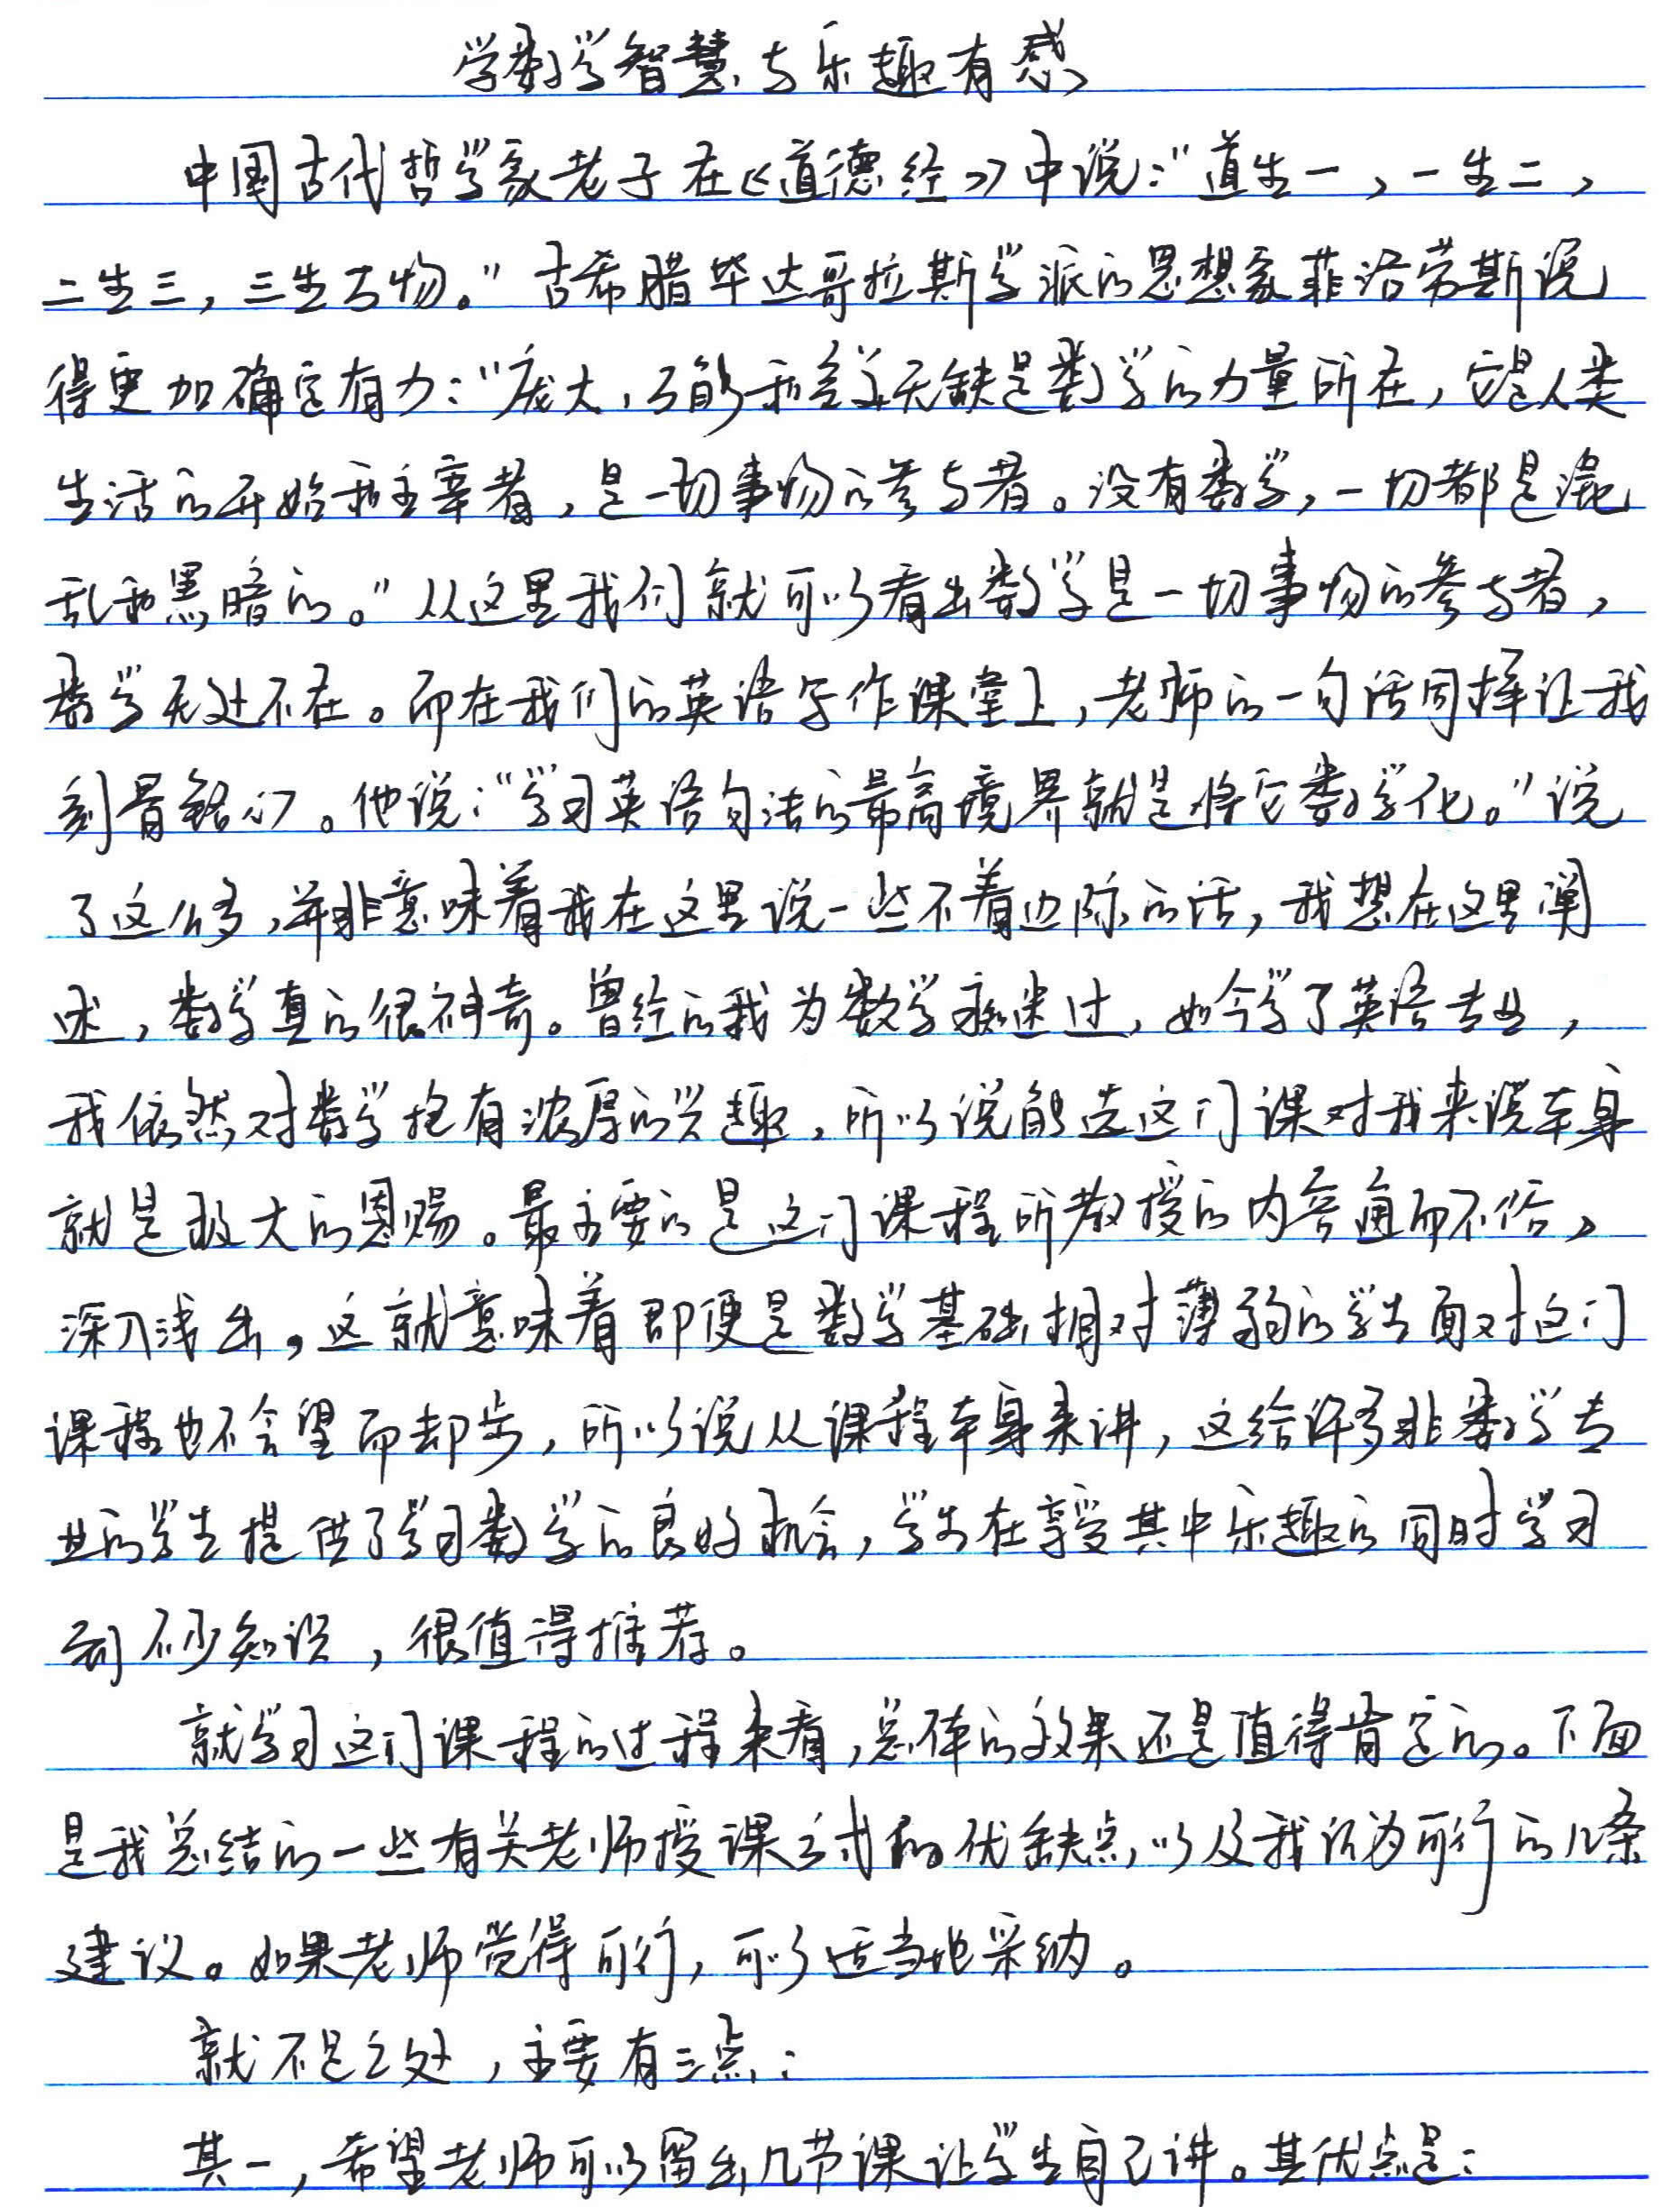 学数学智慧与乐趣有感
中国古代哲学家老子在《道德经》中说：“道生一，一生二，
二生三，三生万物。”古希腊毕达哥拉斯学派的思想家菲洛劳斯说
得更加确定有力：“庞大、万能和完美无缺是数学的力量所在，它是人类
生活的开始和主宰者，是一切事物的参与者。没有数学，一切都是混
乱和黑暗的。”从这里我们就可以看出数学是一切事物的参与者，
数学无处不在。而在我们的英语写作课堂上，老师的一句话同样让我
刻骨铭心。他说：“学习英语句法的最高境界就是将它数学化。”说
了这么多，并非意味着我在这里说一些不着边际的话，我想在这里阐
述，数学真的很神奇。曾经的我为数学痴迷过，如今学了英语专业，
我依然对数学抱有浓厚的兴趣，所以说能选这门课对我来说本身
就是极大的恩赐。最主要的是这门课程所教授的内容通而不俗，
深入浅出，这就意味着即便是数学基础相对薄弱的学生面对这门
课程也不会望而却步，所以说从课程本身来讲，这给许多非数学专
业的学生提供了学习数学的良好机会，学生在享受其中乐趣的同时学习
到不少知识，很值得推荐。
就学习这门课程的过程来看，总体的效果还是值得肯定的。下面
是我总结的一些有关老师授课方式的优缺点，以及我认为可行的几条
建议。如果老师觉得可行，可以适当地采纳。
就不足之处，主要有三点：
其一，希望老师可以留出几节课让学生自己讲。其优点是：